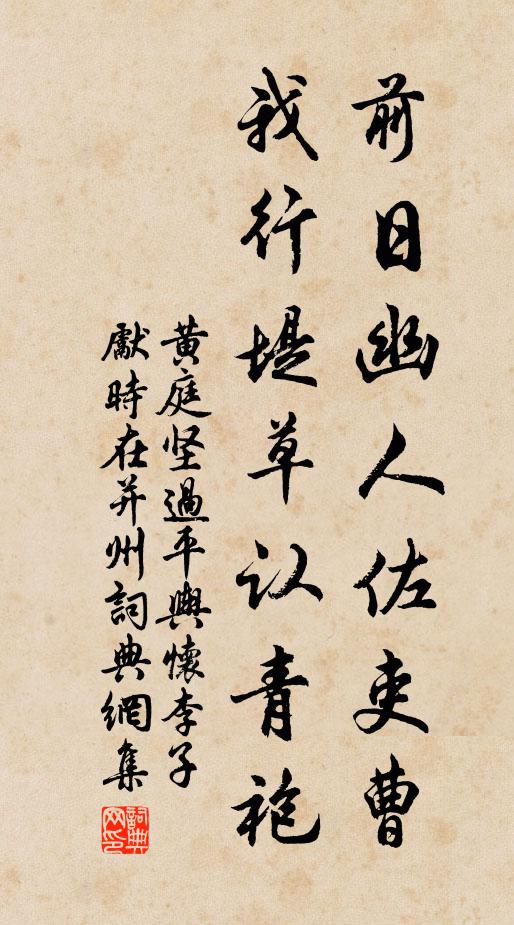 前日幽人佐吏曹
我行堤草认青袍
黄庭坚過平輿懷李子
獻時在并州詞典網集
詞典网印